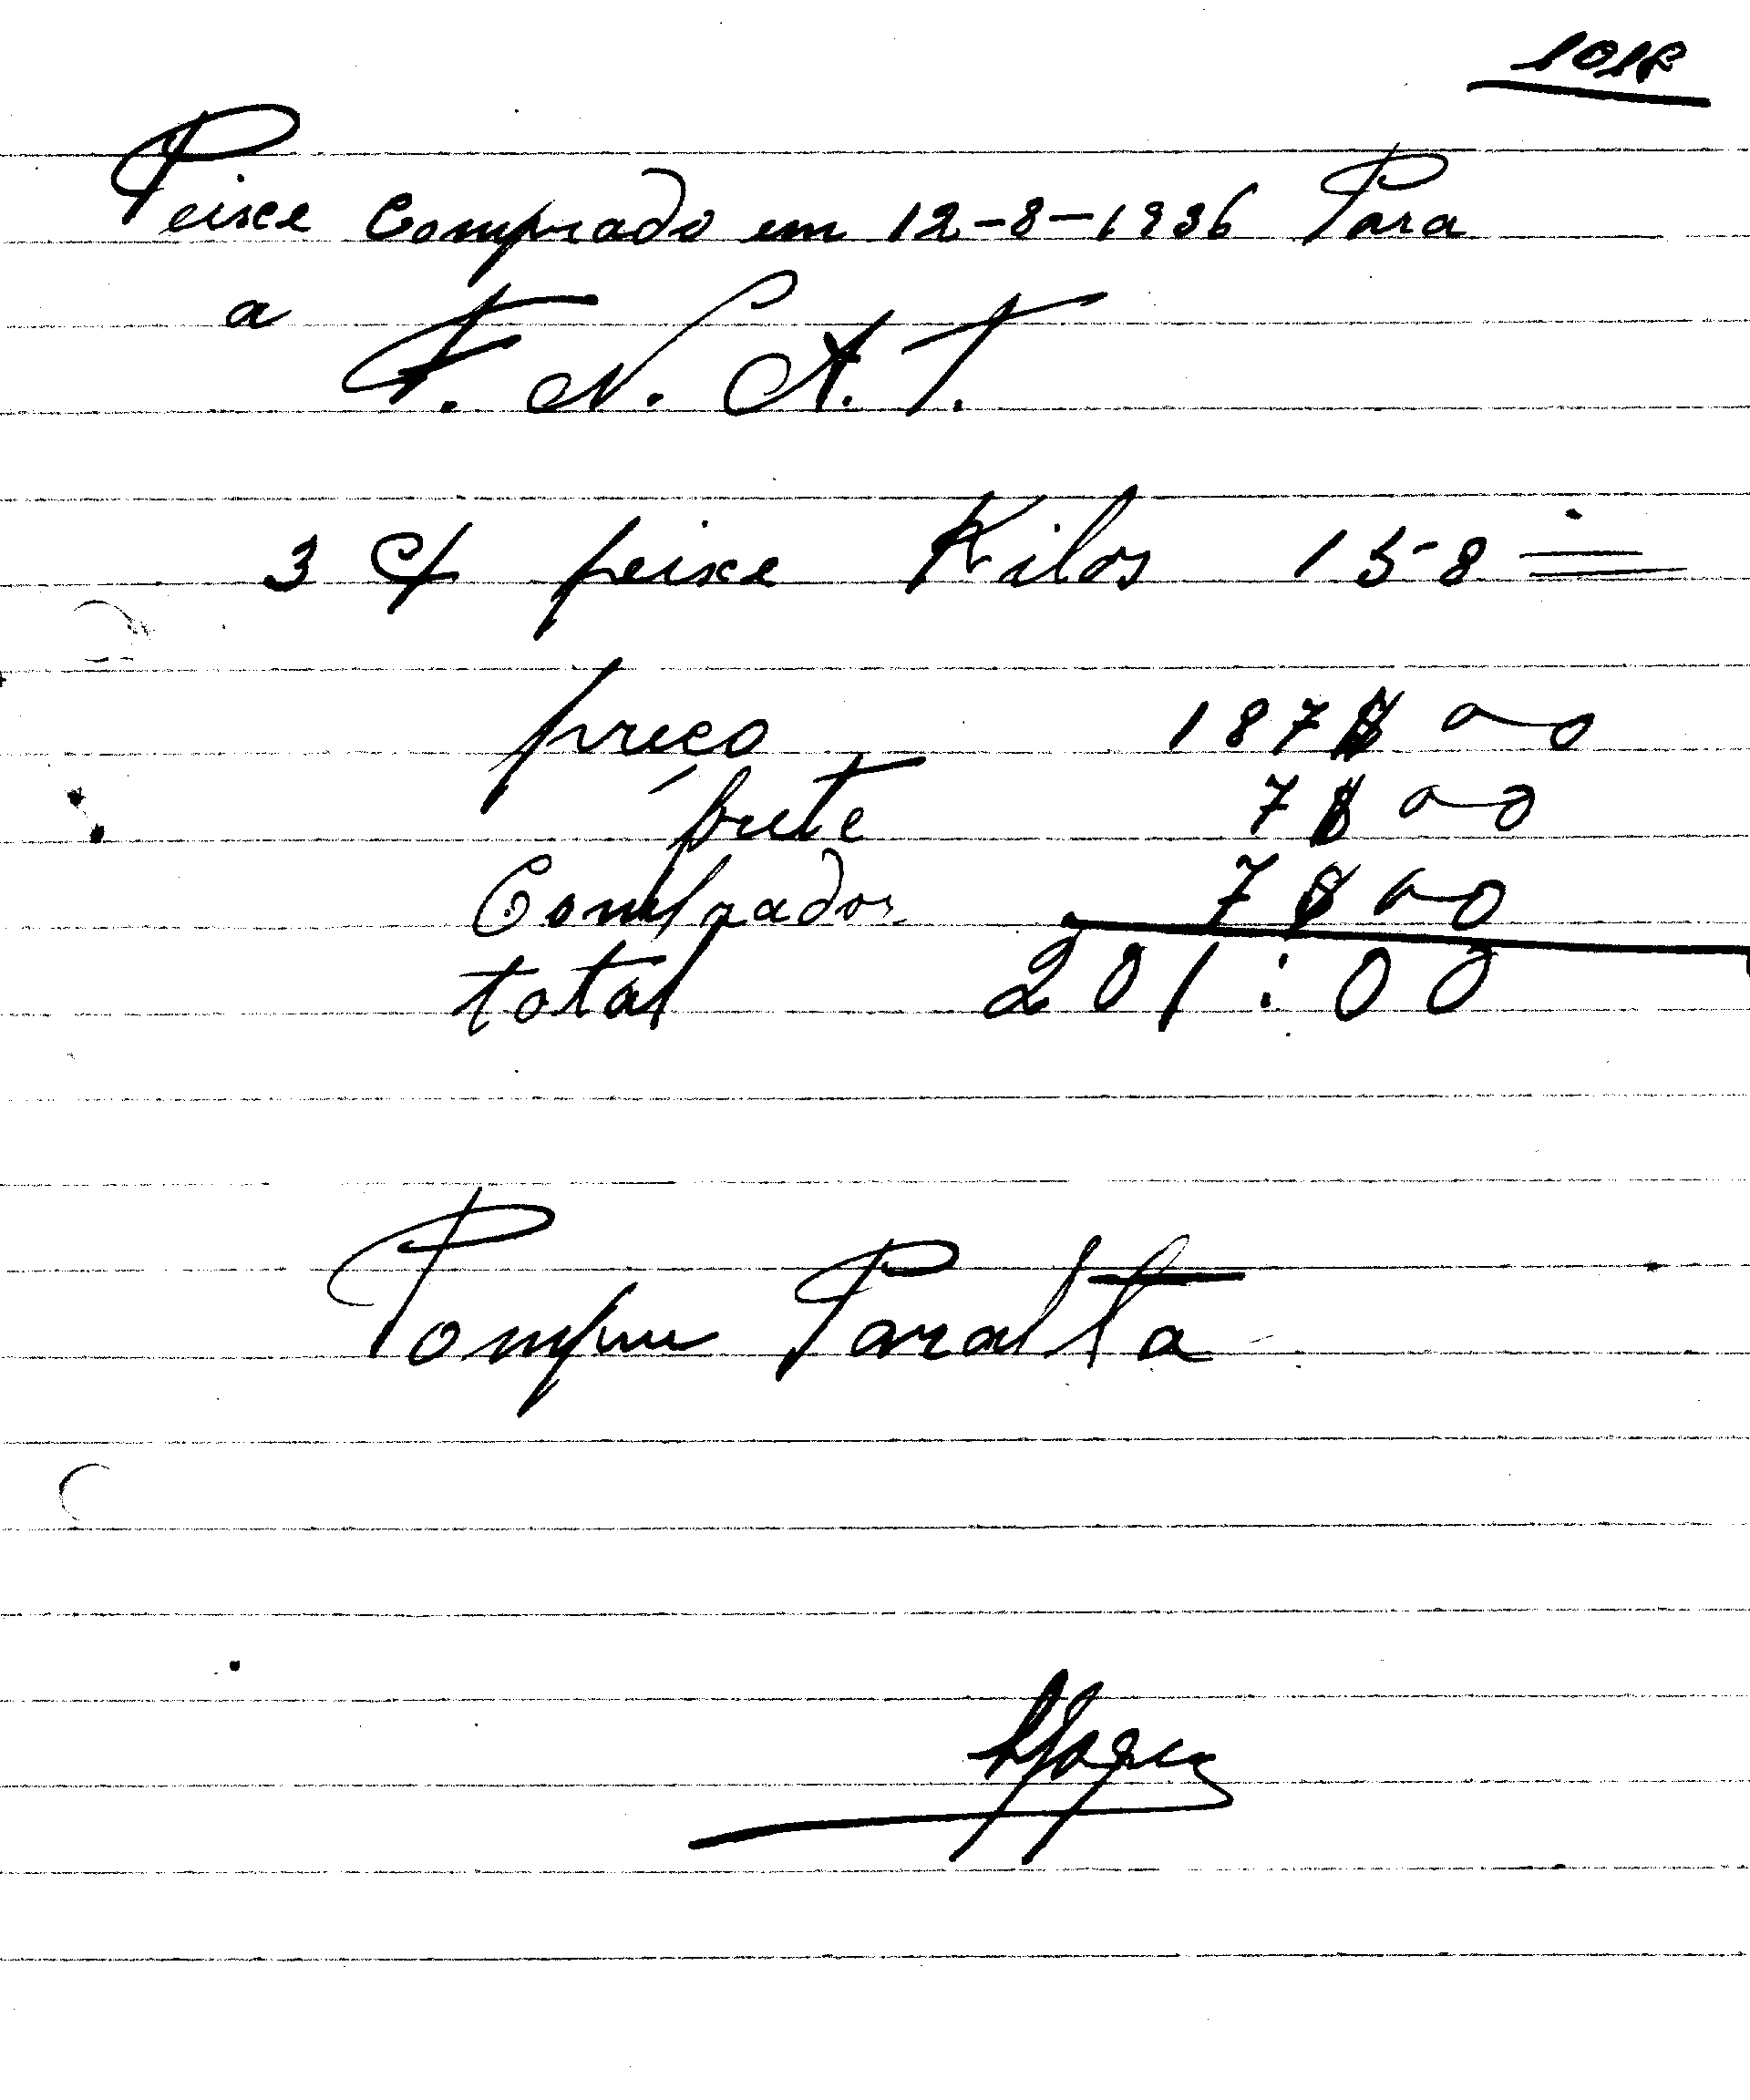 1018
Peixe Comprado em 12-8-1936 Para
a F. N. A. T.
3 c/ peixe Kilos 158
preço 187$00
frete 7$00
Comprador 7$00
total 201:00
Paralta